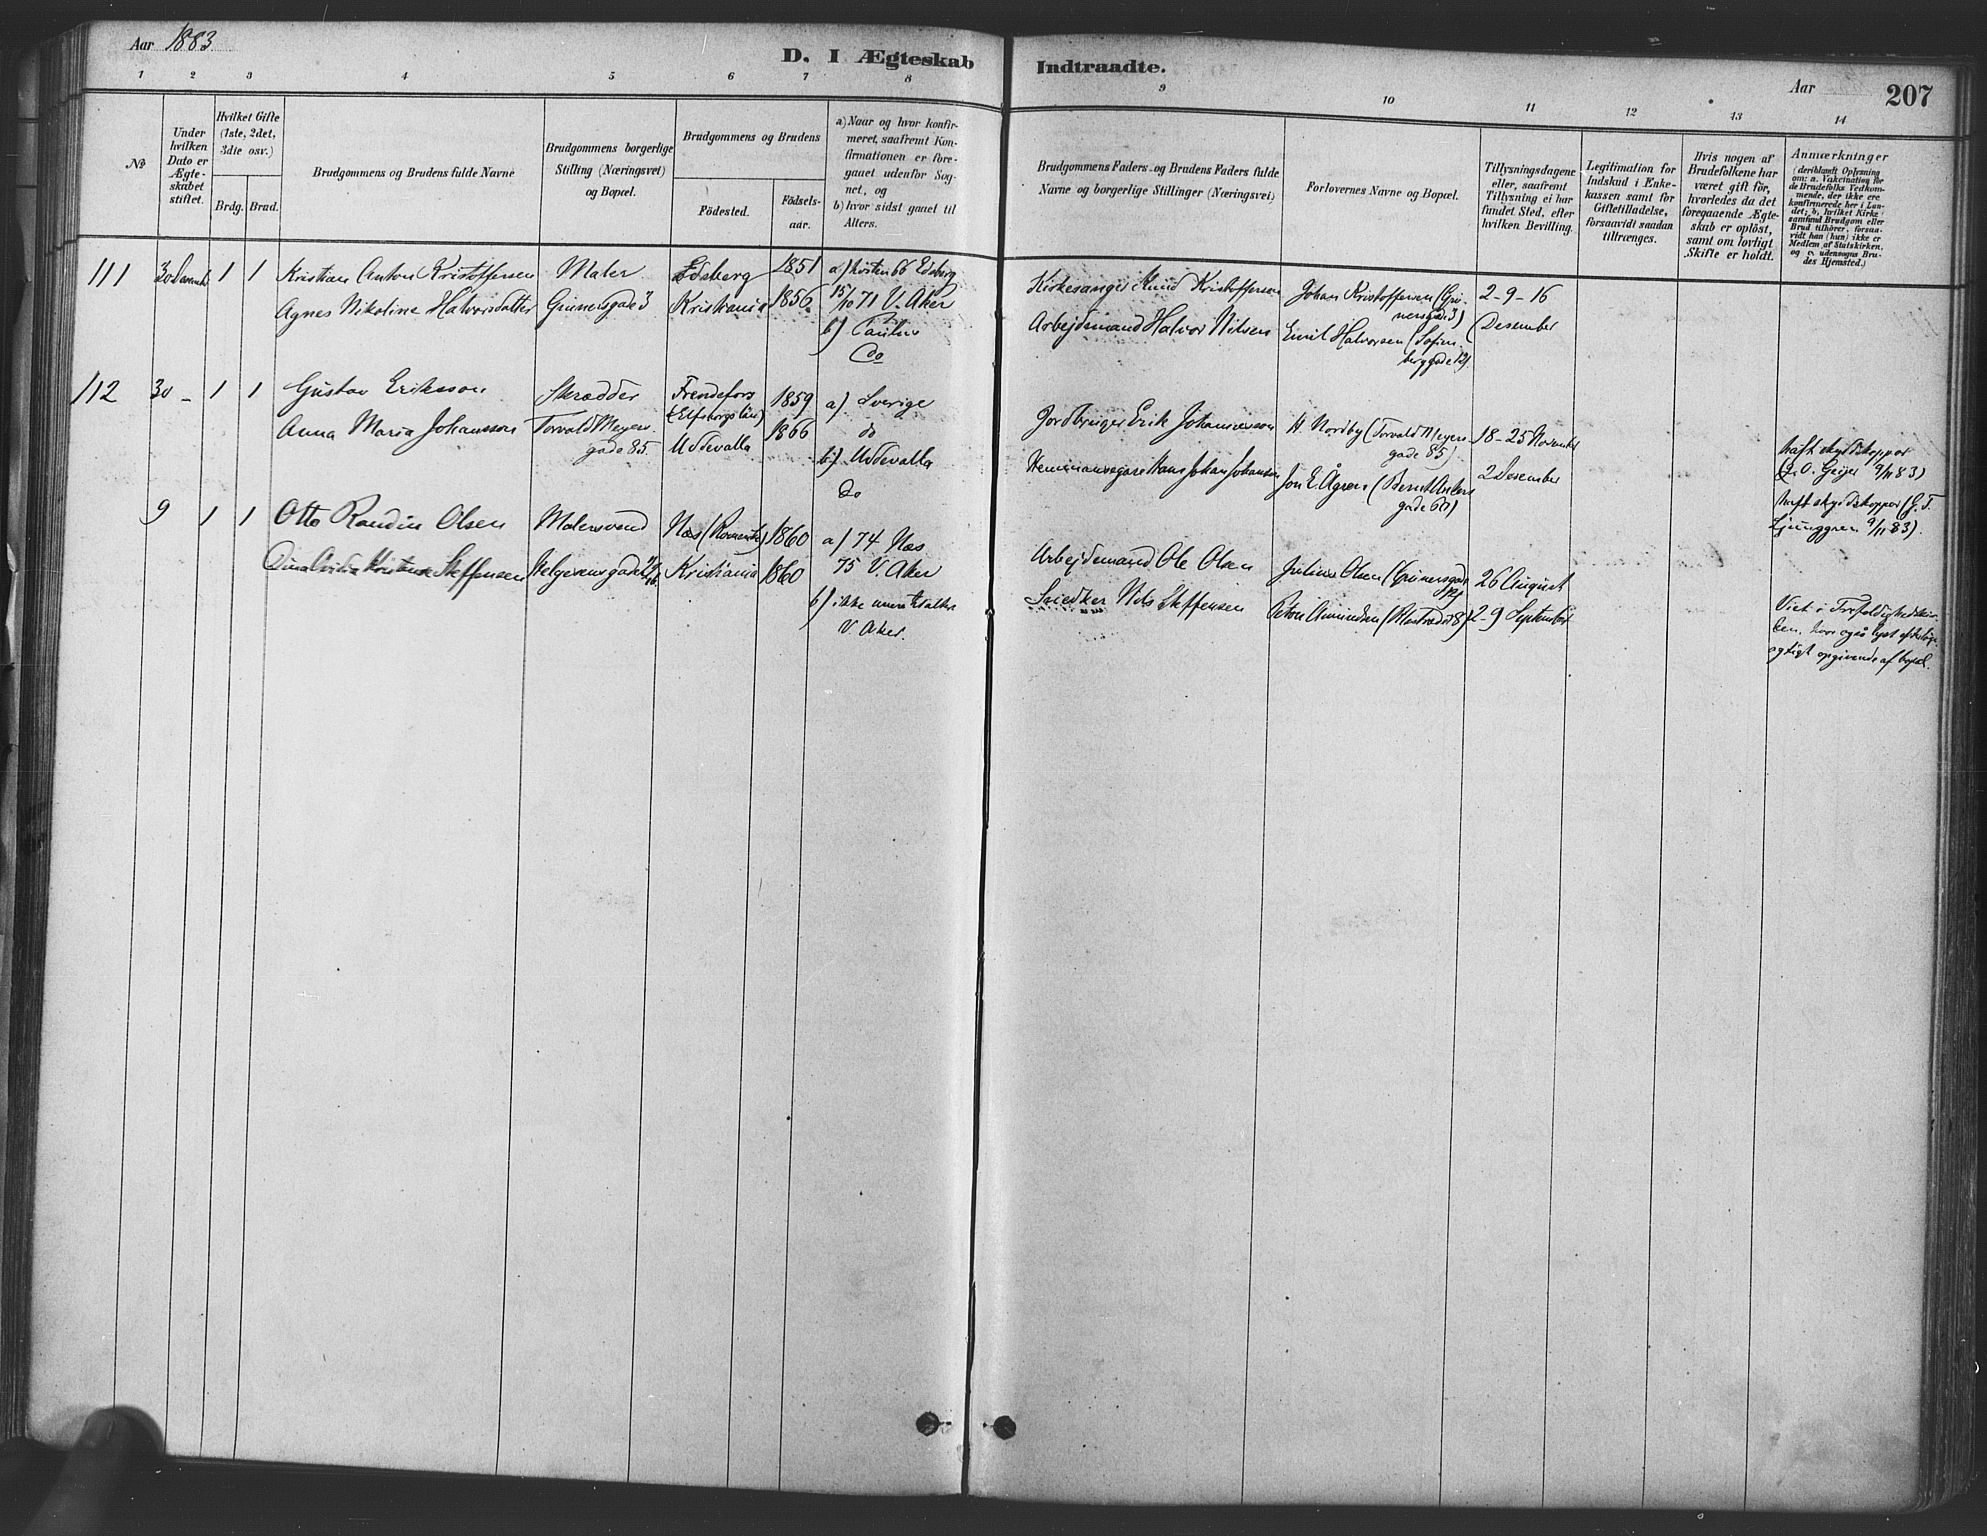 Aar 1883
D. I Ægteskab Indtraadte.
Aar
207
1 2 3 4 5 6 7 8 9 10 11 12 13 14
No
Under hvilken Dato er Ægteskabet stiftet.
Hvilket Gifte (1ste, 2det, 3die osv.)
Brdg. Brud.
Brudgommens og Brudens fulde Navne
Brudgommens borgerlige Stilling (Næringsvei) og Bopæl.
Brudgommens og Brudens
Födested.
Födselsaar.
a) Naar og hvor konfirmeret, saafremt Konfirmationen er foregaaet udenfor Sognet, og
b) hvor sidst gaaet til Alters.
Brudgommens Faders- og Brudens Faders fulde Navne og borgerlige Stillinger (Næringsvei)
Forlovernes Navne og Bopæl.
Tillysningsdagene eller, saafremt Tillysning ei har fundet Sted, efter hvilken Bevilling.
Legitimation for Indskud i Enkekassen samt for Giftetilladelse, forsaavidt saadan tiltrænges.
Hvis nogen af Brudefolkene har været gift för, hvorledes da det foregaaende Ægteskab er oplöst, samt om lovligt Skifte er holdt.
Anmærkninger
(deriblandt Oplysning om: a. Vakcination for de Brudefolks Vedkommende, der ikke ere konfirmerede her i Landet; b, hvilket Kirkesamfund Brudgom eller Brud tilhörer, forsaavidt han (hun) ikke er Medlem af Statskirken, og c, udensogns Brudes Hjemsted.)
111 1 1 Kristian Anton Kristoffersen Maler Edsberg 1851 a) Hösten 66 Edsberg
Agnes Nikoline Halvorsdatter Grünersgade 3 Kristiania 1856 15/10 71 V. Aker
b) Paulus
Do
Kirkesanger Kristoffersen Johan Kristoffersen (Grünersgade 3) 2-9-16
Arbejdsmand Halvor Nilsen Emil Halvorsen (Sofienberggade 12) Desember
112 30 - 1 1 Gustav Eriksson Skrædder Frendefors (Elfsborgs län) 1859 a) Sverige
Anna Maria Johansson Torvald Meyers gade 85 Uddevalla 1866 do
b) Uddevalla
Do
Jordbruger Erik Johannesson H. Nordby (Torvald Meyers gade 85) 18-25 November
Hemmansegare Hans Johan Johansson Jon E. Ågren (Bernt Ankers gade 6) 2 Desember
haft skyddskoppor
O. Geijer 9/11 83)
haft skyddskoppor (G. T.
Ljunggren 9/11 83).
9 1 1 Otto Randin Olsen Malersvend Næs (Romerike) 1860 a) 74 Næs
Kristiane Steffensen Helgesensgade Kristiania 1860 75 V. Aker
b) ikke
V. Aker.
Arbejdsmand Ole Olsen Julius Olsen (Grünersgade 26 August
Snedker Nils Steffensen Petter Amundsen 2-9 September
Viet i Trefoldighedskirken, hvor også lyst
opgivende af bopæl.